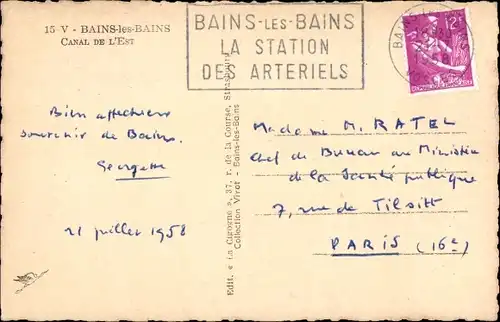 15-V - BAINS-les-BAINS
CANAL DE L'EST
BAINS-LES-BAINS
LA STATION
DES ARTERIELS
12F
Bien affectueux
souvenir de Bains.
Georgette
21 juillet 1958
Edit. « La Cigogne », 37, r. de la Course, Strasbourg
Collection Virot - Bains-les-Bains
Madame M. RATEL
Chef de Bureau au Ministère
de la Santé publique
7, rue de Tilsitt
PARIS (16e)